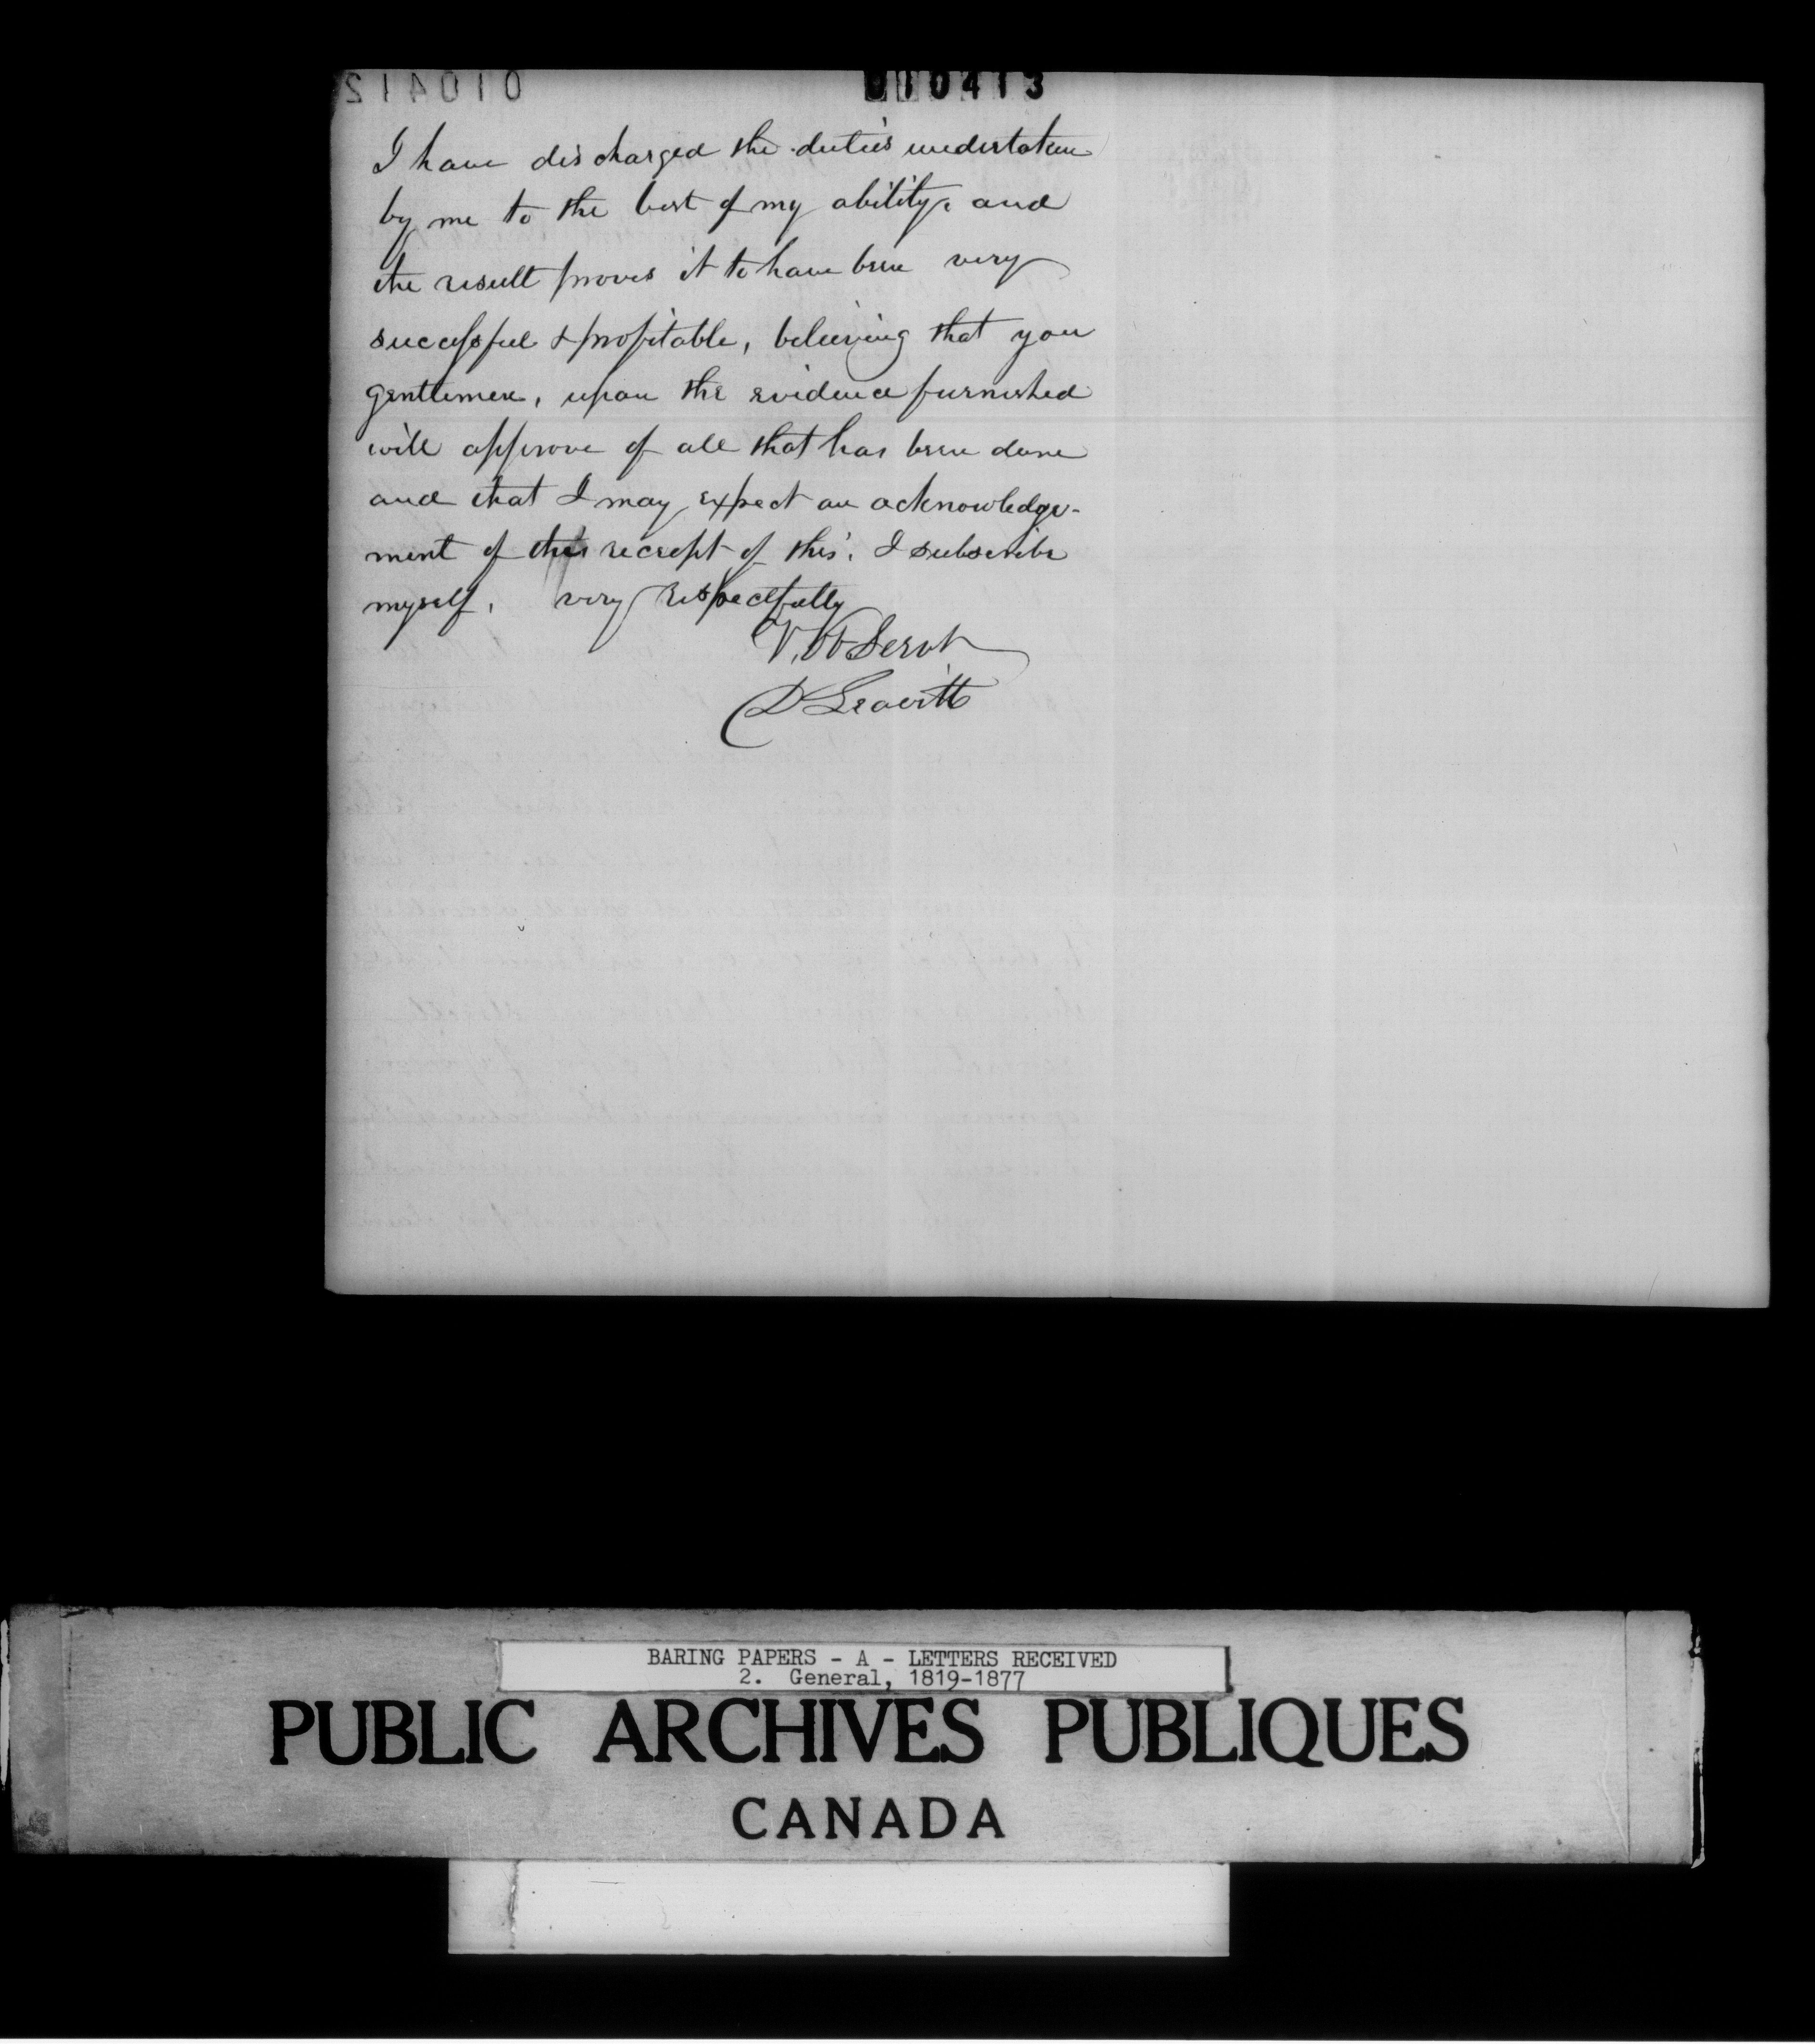 010412
010413
I have discharged the duties undertaken
by me to the best of my ability, and
the result proves it to have been very
successful & profitable, believing that you
gentlemen, upon the evidence furnished
will approve of all that has been done
and that I may expect an acknowledge-
ment of the receipt of this, I subscribe
myself, very respectfully
D Leavitt
BARING PAPERS - A - LETTERS RECEIVED
2. General, 1819-1877
PUBLIC ARCHIVES PUBLIQUES
CANADA